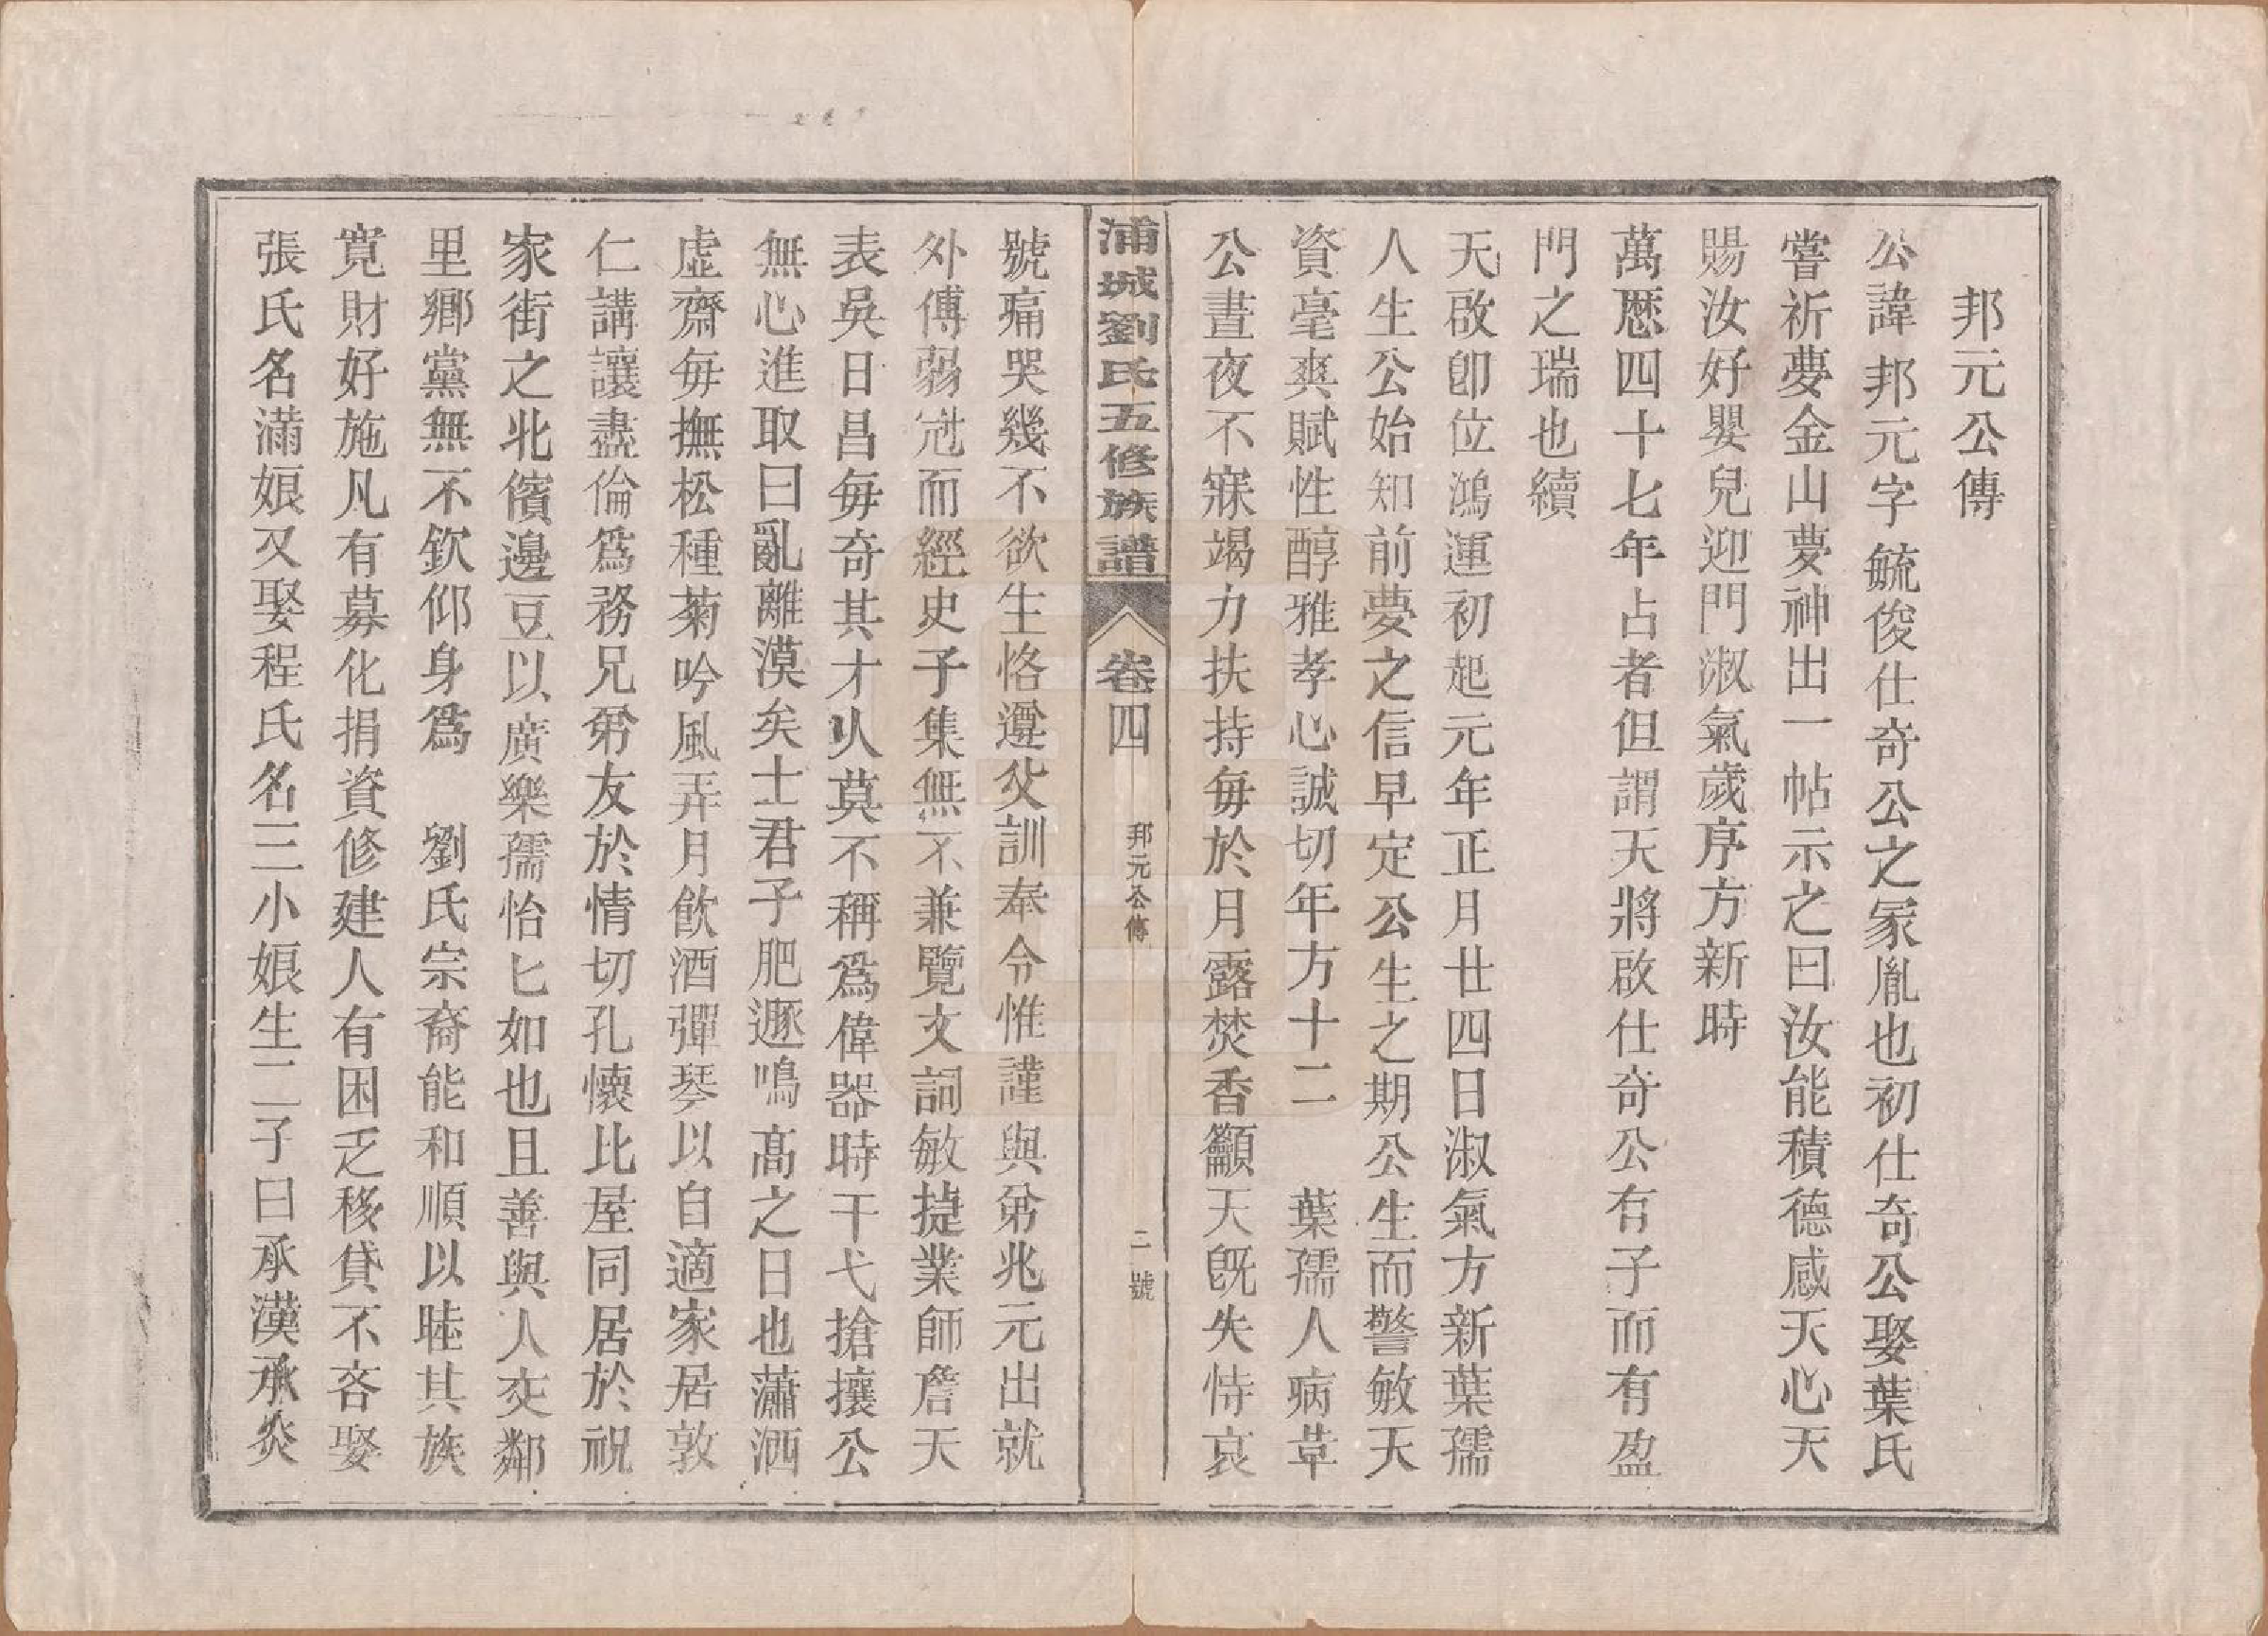 邦元公傳
公諱邦元字毓俊仕奇公之冢胤也初仕奇公娶葉氏
嘗祈夢金山夢神出一帖示之曰汝能積德感天心天
賜汝好嬰兒迎門淑氣歲序方新時
萬歷四十七年占者但謂天將啟仕奇公有子而有盈
門之瑞也續
天啟卽位鴻運初起元年正月廿四日淑氣方新葉孺
人生公始知前夢之信早定公生之期公生而警敏天
資毫爽賦性醇雅孝心誠切年方十二 葉孺人病草
公晝夜不寐竭力扶持每於月露焚香籲天旣失恃哀
浦城劉氏五修族譜 卷四 邦元公傳 二號
號痛哭幾不欲生恪遵父訓奉令惟謹與弟兆元出就
外傅弱冠而經史子集無不兼覽文詞敏捷業師詹天
表吳日昌每奇其才人莫不稱爲偉器時干弋搶攘公
無心進取曰亂離漠矣士君子肥遯鳴高之日也蕭洒
虛齋每撫松種菊吟風弄月飲酒彈琴以自適家居敦
仁講讓盡倫爲務兄弟友於情切孔懷比屋同居於祝
家街之北儐邊豆以廣樂孺怡匕如也且善與人交鄰
里鄉黨無不欽仰身爲 劉氏宗裔能和順以睦其族
寬財好施凡有募化捐資修建人有困乏移貸不吝娶
張氏名滿娘又娶程氏名三小娘生二子曰承漢承炎